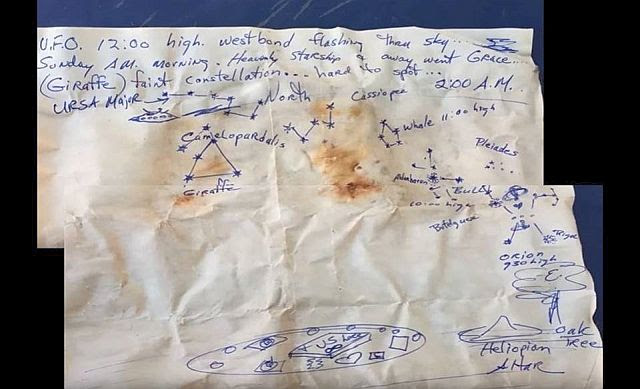 U.F.O. 12:00 high. westbond flashing thru sky...
Sunday A.M. morning. Heavenly Starship a away went Grace...
(Giraffe) faint constellation... hard to spot...
2:00 A.M.
URSA Major
North
Cassiopea
Whale 11:00 high
Camelopardalis
Pleiades
Giraffe
Aldabaron
BULL
10:00 high
Betelguex
Rigel
ORION
930 high
Oak
Tree
Heliopian
Altar